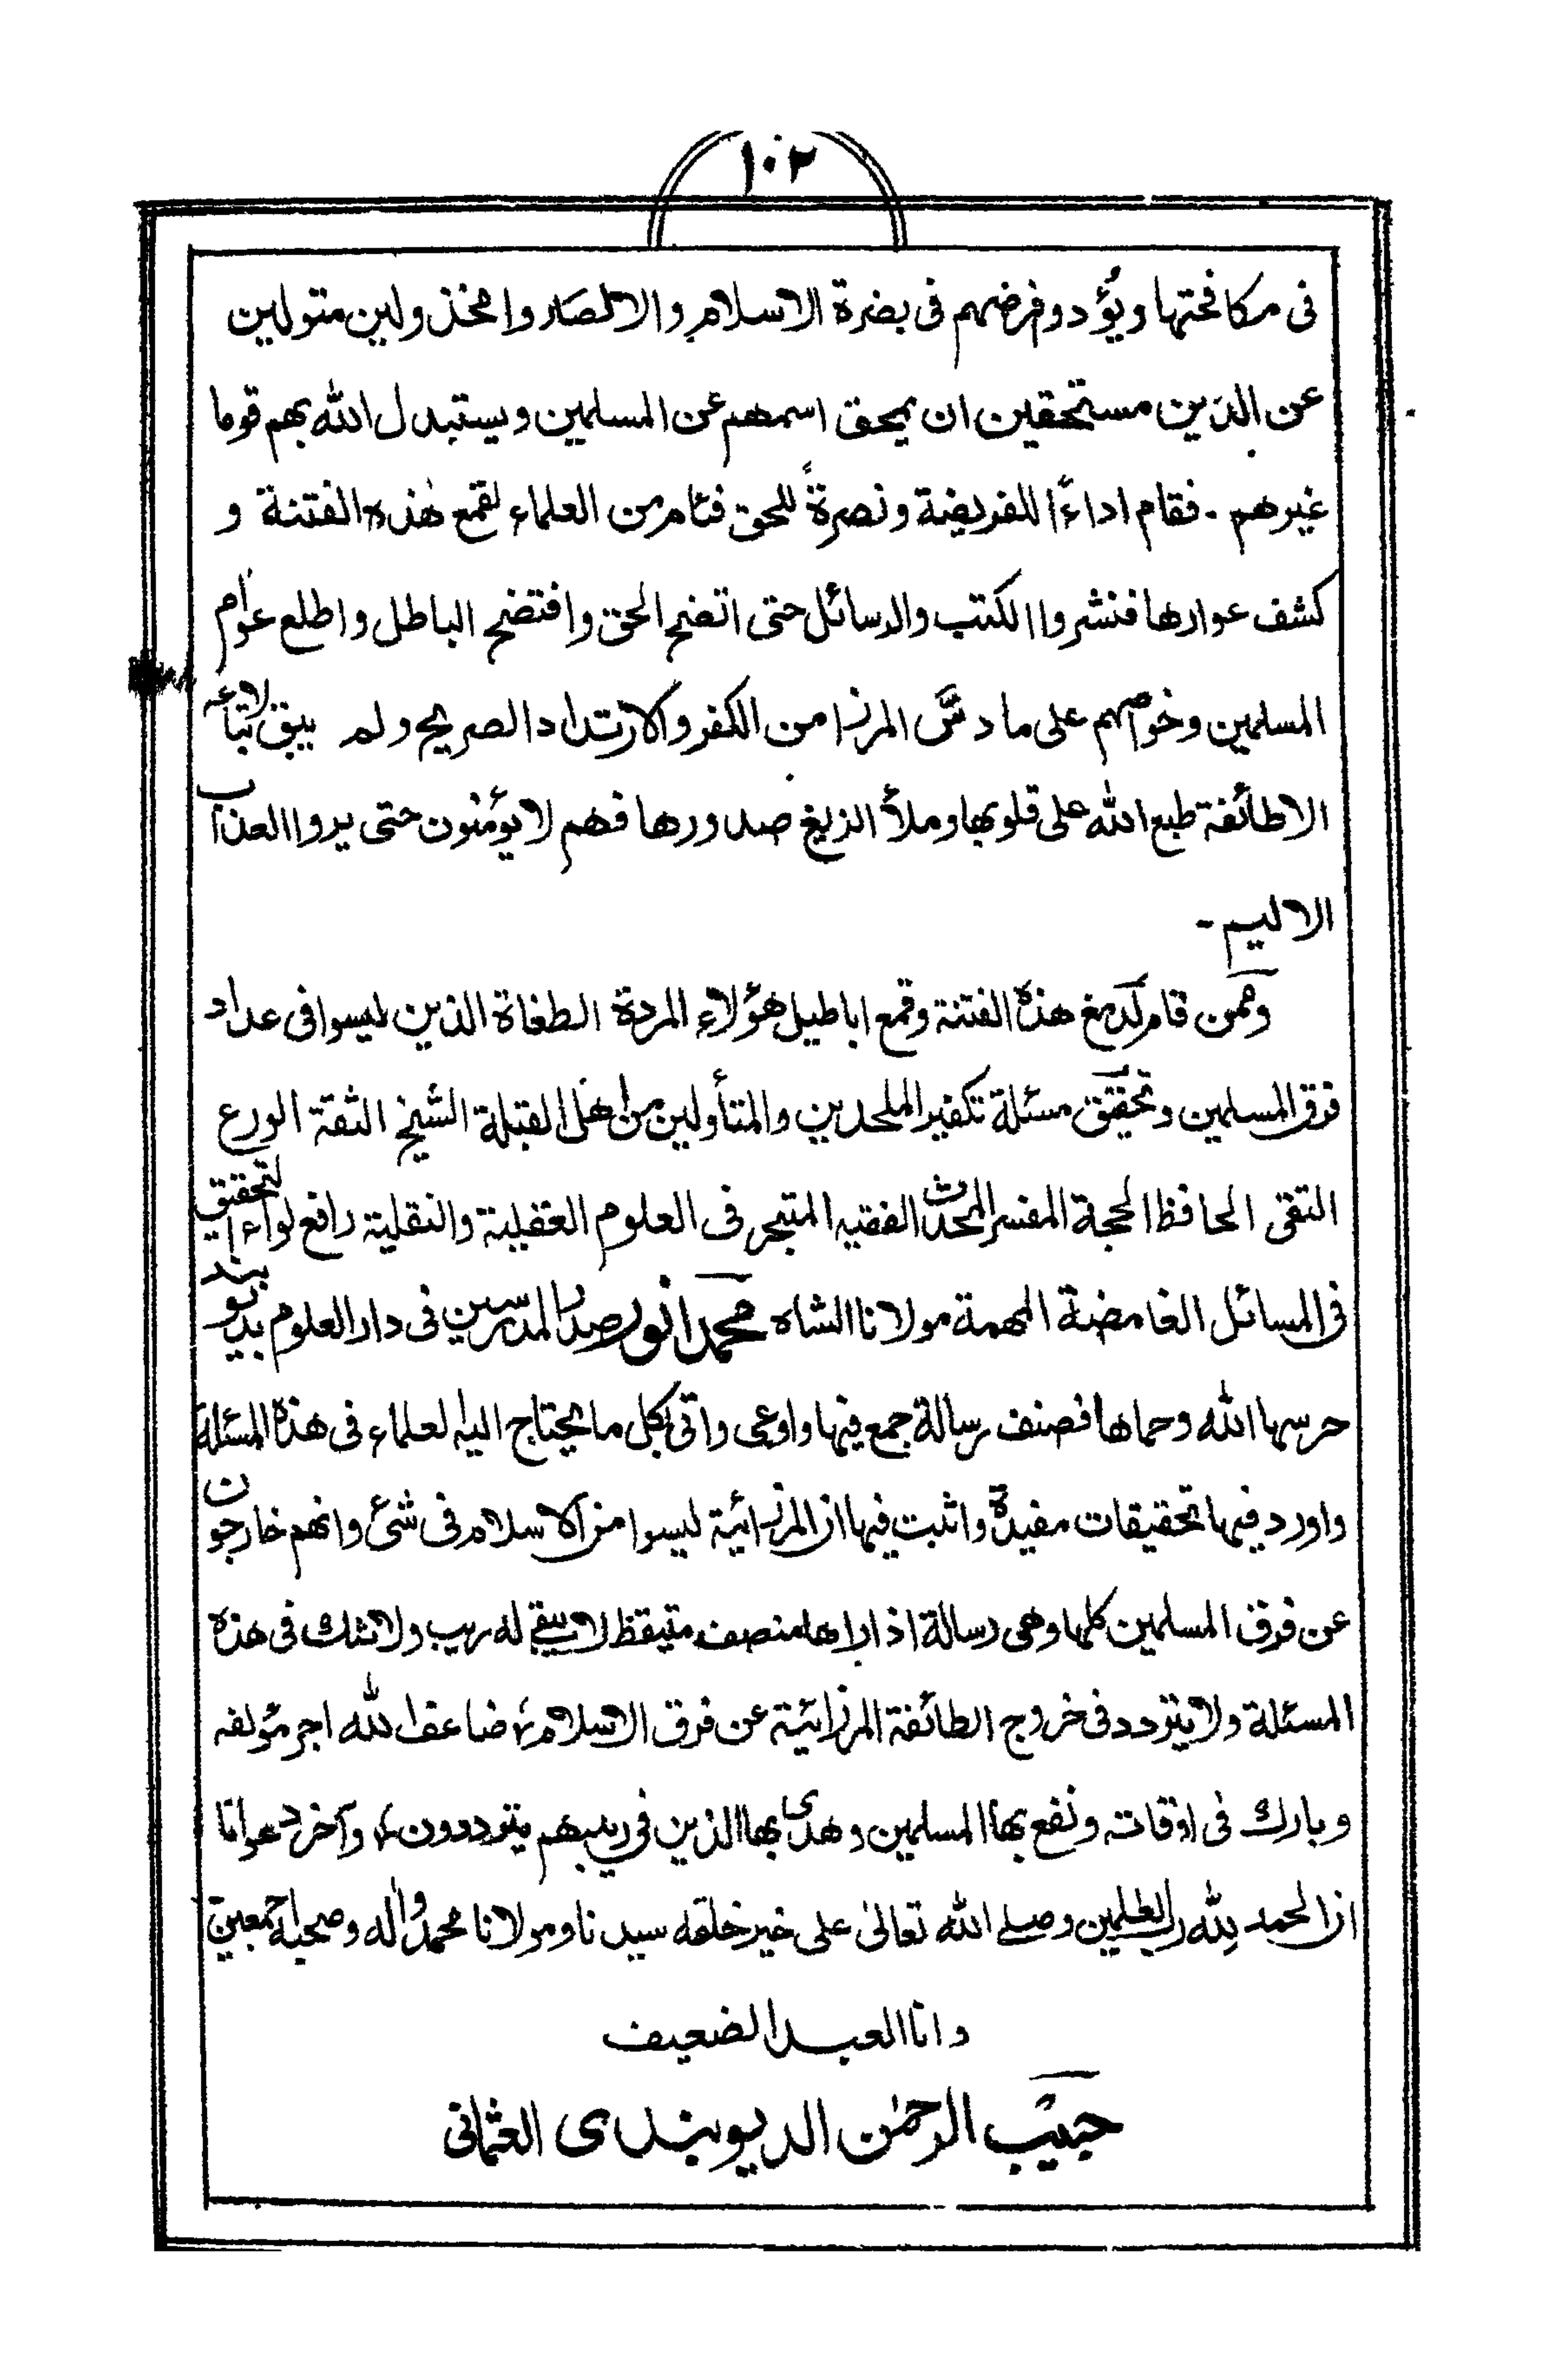 ١٠٢
فى مكافحتها ويؤدوفرضهم فى بضرة الاسلام والا لصاروا مخذولين متولين
عن الدين مستحقين ان يمحق اسمهم عن المسلمين ويستبدل الله بهم قوما
غيرهم ۔ فقام اداءً للفريضة ونصرةً للحق فئام من العلماء لقمع هٰذه الفتنة و
كشف عوارها فنشروا الكتب والرسائل حتى اتضح الحق وافتضح الباطل واطلع عوام
المسلمين وخواصهم على ما دسَّ المرزا من الكفر والارتداد الصريح ولم يبق لاتباعه
الا طائفة طبع الله على قلوبها وملأ الزيغ صدورها فهم لا يؤمنون حتى يروا العذاب
الاليم ۔
وممن قام لدمغ هذه الفتنة وقمع اباطيل هؤلاء المردة الطغاة الذين ليسوا فى عداد
فرق المسلمين وتحقيق مسئلة تكفير الملحدين والمتأولين من اهل القبلة الشيخ الثقة الورع
التقى الحافظ الحجة المفسر المحدث الفقيه المتبحر فى العلوم العقلية والنقلية رافع لواء التحقيق
فى المسائل الغامضة المهمة مولانا الشاه محمد انور صدر المدرسين فى دار العلوم بديوبند
حرسها الله وحماها فصنف رسالة جمع فيها واوعى واتى بكل ما يحتاج اليه العلماء فى هذه المسئلة
واورد فيها تحقيقات مفيدة واثبت فيها ان المرزائية ليسوا من الاسلام فى شئ وانهم خارجون
عن فرق المسلمين كلها وهى رسالة اذا راها منصف متيقظ لا يبقے له ريب ولا شك فى هذه
المسئلة ولا يتردد فى خروج الطائفة المرزائية عن فرق الاسلام، ضاعف الله اجر مؤلفه
وبارك فى اوقاته ونفع بها المسلمين وهدى بها الذين فى ريبهم يترددون، وآخر دعوانا
ان الحمد لله رب العٰلمين وصلے الله تعالىٰ على خير خلقه سيدنا ومولانا محمد واٰله وصحبه اجمعين
وانا العبد الضعيف
حبيب الرحمٰن الديوبندى العثمانى